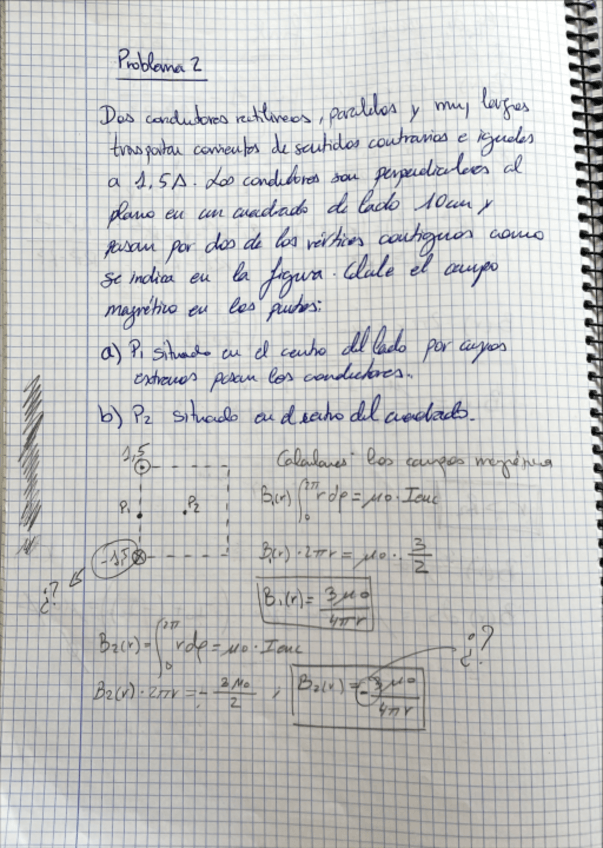 Problema 2
Dos conductores rectilíneos, paralelos y muy largos
trasportan corrientes de sentidos contrarios e iguales
a 1,5A. Los conductores son perpendiculares al
plano en un cuadrado de lado 10cm y
pasan por dos de los vértices contiguos como
se indica en la figura. Calcule el campo
magnético en los puntos:
a) P₁ situado en el centro del lado por cuyos
extremos pasan los conductores.
b) P₂ situado en el centro del cuadrado.
1,5
Calculamos los campos
P₁ P₂
B₁(r) ∫₀^2π r dφ = μ0 · Ienc
B₁(r) · 2πr = μ0 · 3/2
-1,5
¿?
B₁(r) = 3μ0/4πr
B₂(r) = ∫₀^2π r dφ = μ0 · Ienc
¿?
B₂(r) · 2πr = - 3μ0/2 ; B₂(r) = - 3μ0/4πr